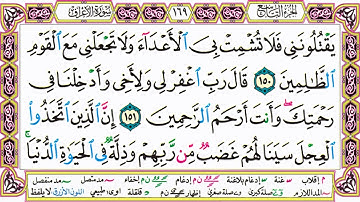 الجزء التاسع ١٦٩ سورة الأعراف
يَقْتُلُونَنِي فَلَا تُشْمِتْ بِيَ ٱلْأَعْدَآءَ وَلَا تَجْعَلْنِي مَعَ ٱلْقَوْمِ
ٱلظَّٰلِمِينَ ١٥٠ قَالَ رَبِّ ٱغْفِرْ لِي وَلِأَخِي وَأَدْخِلْنَا فِي
رَحْمَتِكَ وَأَنتَ أَرْحَمُ ٱلرَّٰحِمِينَ ١٥١ إِنَّ ٱلَّذِينَ ٱتَّخَذُوا۟
ٱلْعِجْلَ سَيَنَالُهُمْ غَضَبٌ مِّن رَّبِّهِمْ وَذِلَّةٌ فِي ٱلْحَيَوٰةِ ٱلدُّنْيَا